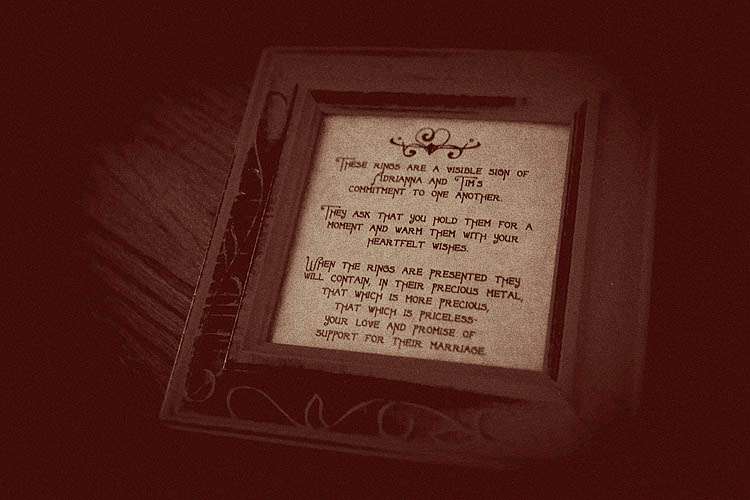 These rings are a visible sign of
Adrianna and Tim's
commitment to one another.
They ask that you hold them for a
moment and warm them with your
heartfelt wishes.
When the rings are presented they
will contain, in their precious metal,
that which is more precious,
that which is priceless-
your love and promise of
support for their marriage.